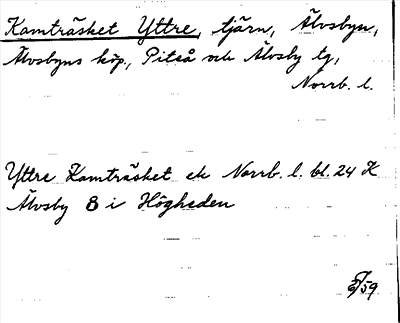 Kamträsket Yttre, tjärn, Älvsbyn,
Älvsbyns köp., Piteå och Älvsby tg,
Norrb. l.
Yttre Kamträsket ek Norrb. l. bl. 24 K
Älvsby 8 i Högheden
/59